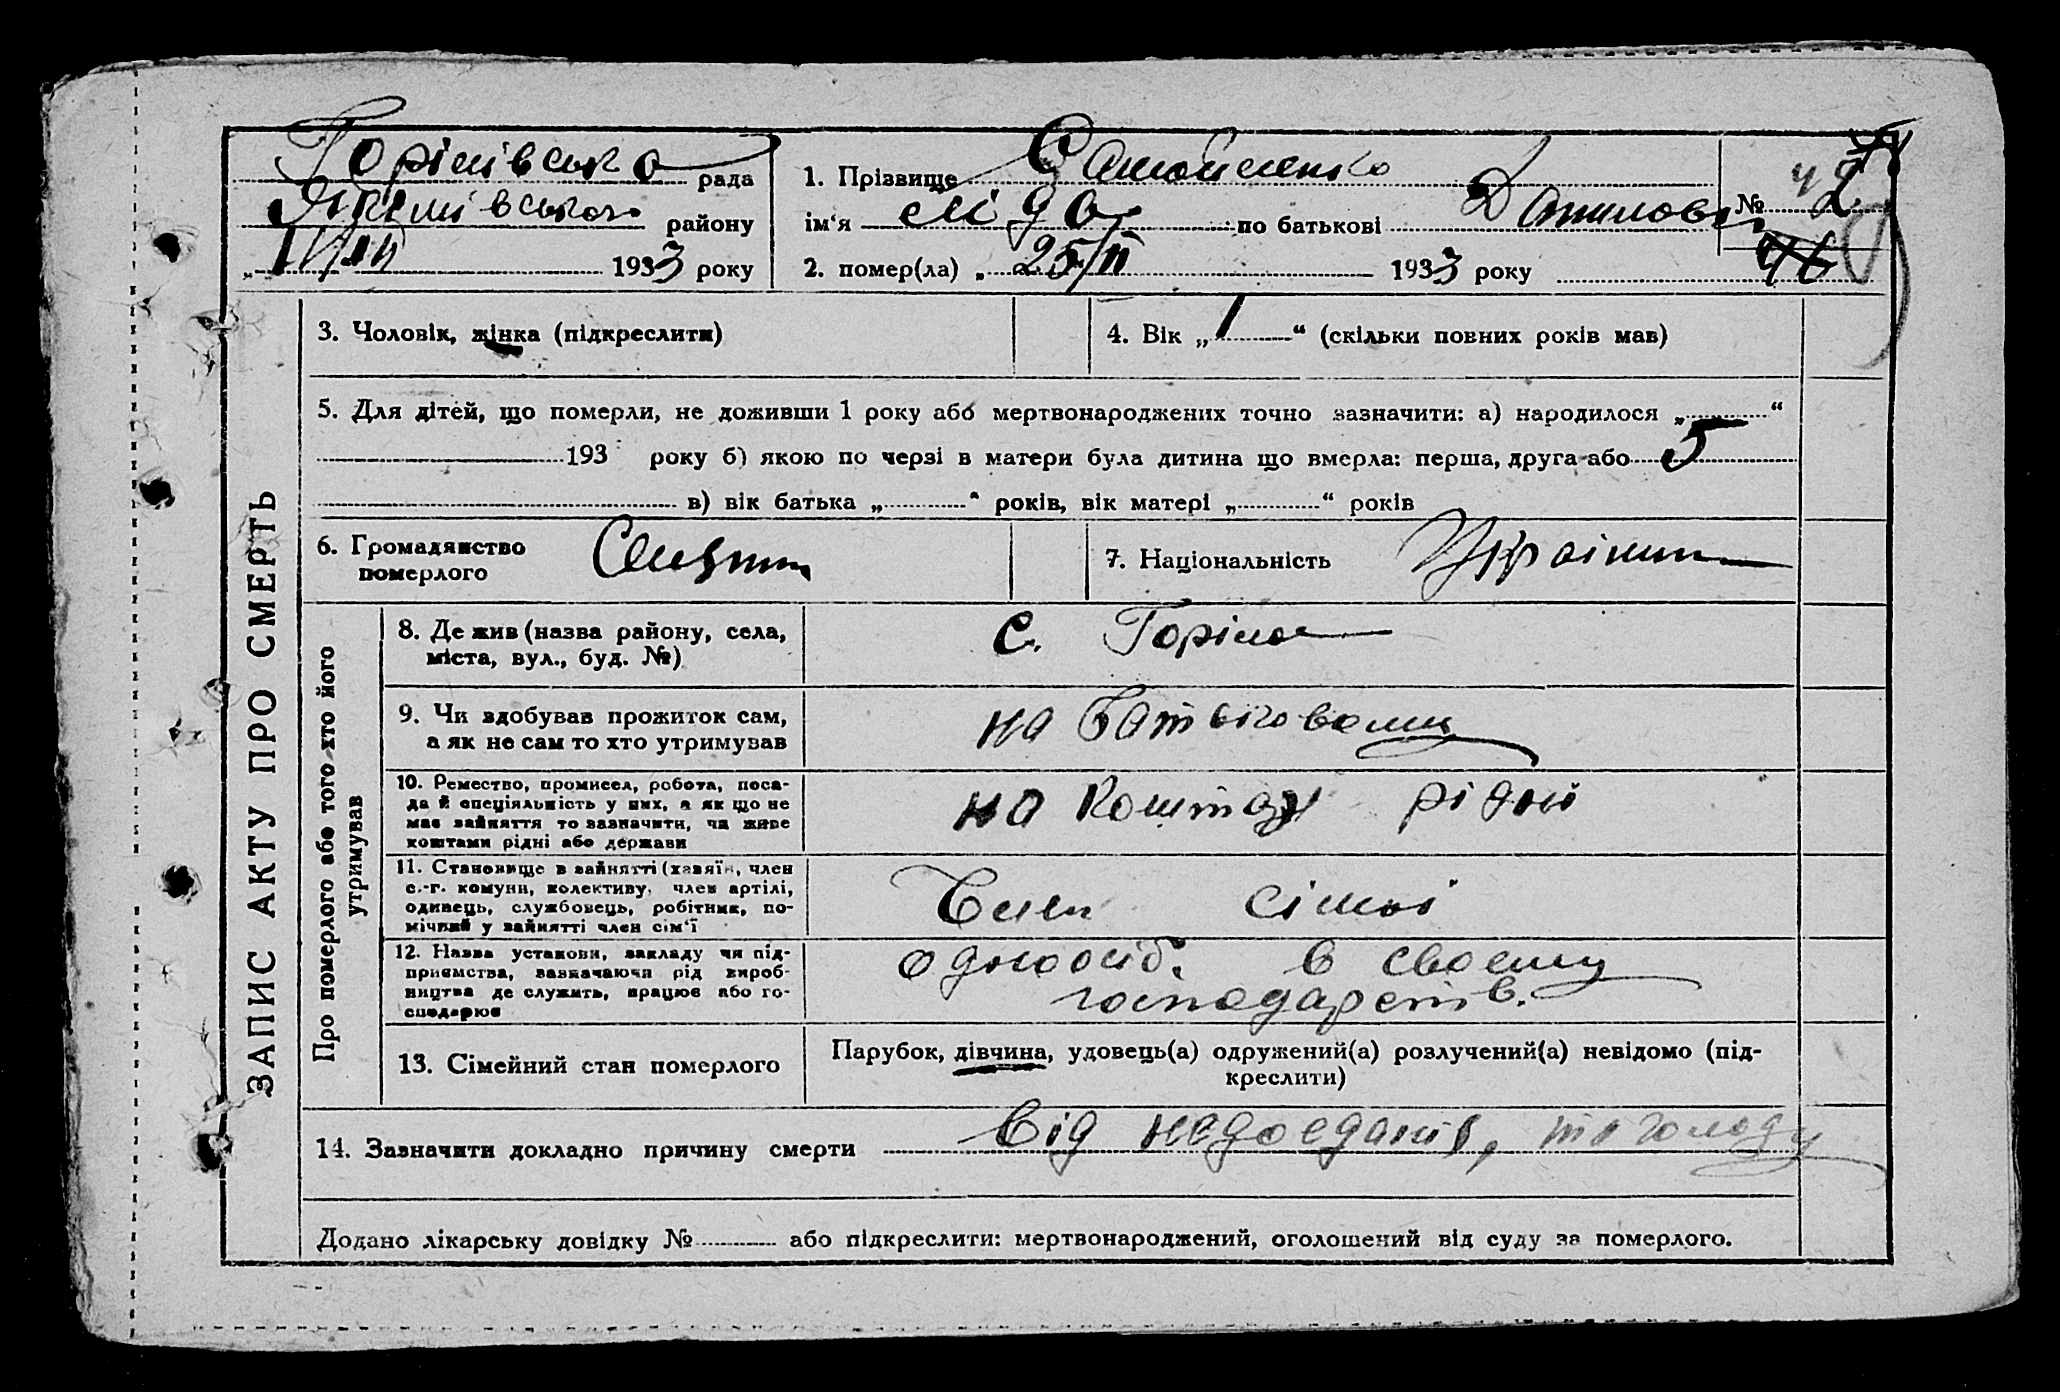 Горімівська рада
району
193 3 року
1. Прізвище Самойленко
ім‘я Ліда по батькові Данилов
2. помер(ла) „ 25/II 193 3 року
№ 42
3. Чоловік, жінка (підкреслити)
4. Вік „ 1 “ (скільки повних років мав)
5. Для дітей, що померли, не доживши 1 року або мертвонароджених точно зазначити: а) народилося „ “
193 року б) якою по черзі в матери була дитина що вмерла: перша, друга або 5
в) вік батька „ “ років, вік матері „ “ років
6. Громадянство
померлого
7. Національність Україн
ЗАПИС АКТУ ПРО СМЕРТЬ
Про померлого або того хто його
утримував
8. Де жив (назва району, села,
міста, вул., буд. №)
с.
9. Чи здобував прожиток сам,
а як не сам то хто утримував
на батьковому
10. Ремество, промисел, робота, поса-
да й спеціяльність у них, а як що не
має зайняття то зазначити, чи живе
коштами рідні або держави
на коштах рідні
11. Становище в зайнятті (хазяїн, член
с.-г. комуни, колективу, член артілі,
одинець, службовець, робітник, по-
мічний у зайнятті член сім‘ї
Член сімьі
12. Назва установи, закладу чи під-
приємства, зазначаючи рід вироб-
ництва де служить, працює або го-
сподарює
одноосіб. в своєму
господарств.
13. Сімейний стан померлого
Парубок, дівчина, удовець(а) одружений(а) розлучений(а) невідомо (під-
креслити)
14. Зазначити докладно причину смерти від недоєдання, та голоду
Додано лікарську довідку № або підкреслити: мертвонароджений, оголошений від суду за померлого.